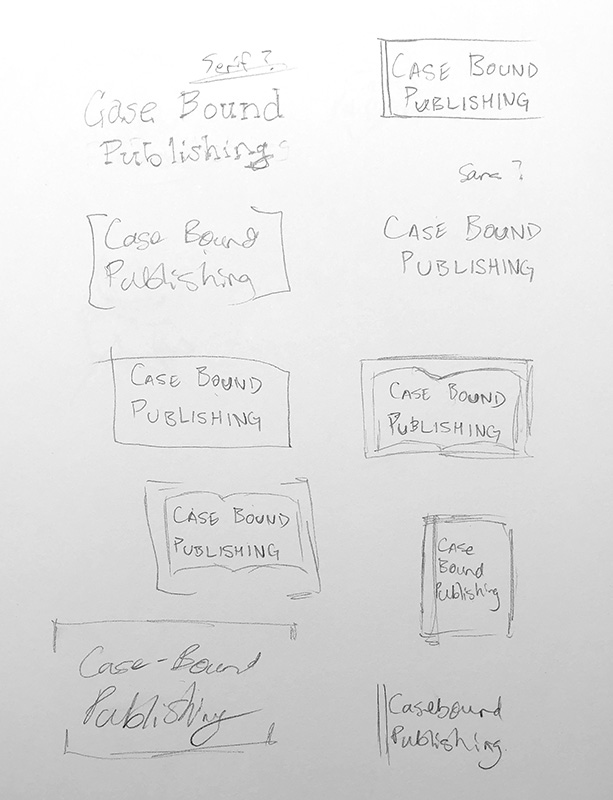 Serif?
Case Bound
Publishing
CASE BOUND
PUBLISHING
Sans?
Case Bound
Publishing
CASE BOUND
PUBLISHING
CASE BOUND
PUBLISHING
CASE BOUND
PUBLISHING
CASE BOUND
PUBLISHING
Case
Bound
Publishing
Case-Bound
Publishing
Casebound
Publishing.